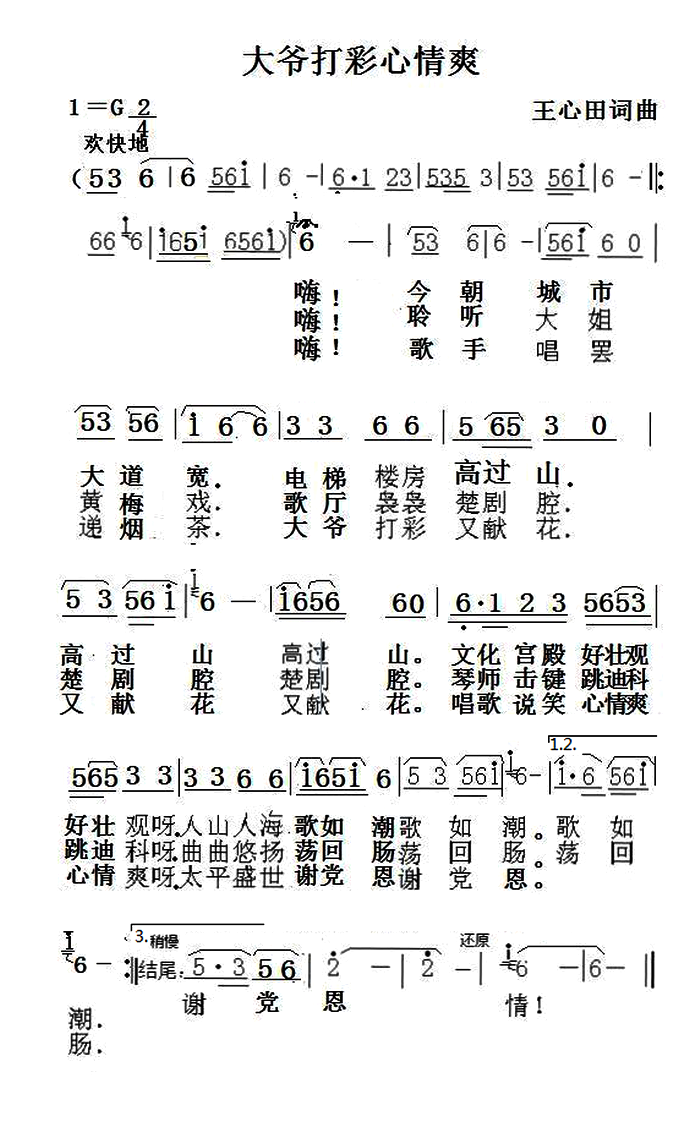 大爷打彩心情爽
1=G 2/4 王心田词曲
欢快地
(53 6 | 6 561̇ | 6 - | 6·1 23 | 535 3 | 53 561̇ | 6 - |:
66 1̇6 | 1̇651̇ 6561̇) | 1̇6 — | 53 6 | 6 - | 561̇ 6 0 |
嗨! 今朝城市
嗨! 聆听大姐
嗨! 歌手唱罢
53 56 | 1̇ 6 6 | 3 3 6 6 | 5 65 3 0 |
大道宽. 电梯楼房高过山.
黄梅戏. 歌厅袅袅楚剧腔.
递烟茶. 大爷打彩又献花.
5 3 56 1̇ | 1̇6 — | 1̇656 60 | 6̣·1 2 3 5653 |
高过山 高过山。文化宫殿好壮观
楚剧腔 楚剧腔。琴师击键跳迪科
又献花 又献花。唱歌说笑心情爽
1.2.
565 3 3 | 3 3 6 6 | 1̇651̇ 6 | 5 3 561̇ | 1̇6 - | 1̇·6 561̇ |
好壮观呀.人山人海歌如潮歌如潮。歌如
跳迪科呀.曲曲悠扬荡回肠荡回肠。荡回
心情爽呀.太平盛世谢党恩谢党恩。
3. 稍慢 还原
1̇6 - :| 结尾: 5·3 56 | 2̇ — | 2̇ — | 1̇6 — | 6 — ||
谢党恩 情!
潮.
肠.